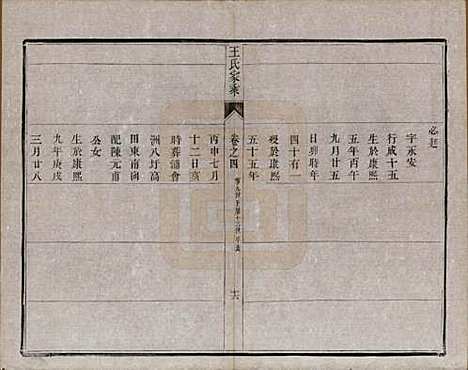 字永安
行成十五
生於康熙
五年丙午
九月廿五
日卯時年
四十有一
歿於康熙
五十五年
王氏家乘
卷之四
丙申七月
十二日亥
時葬浦會
洲八圩高
田東南向
配陳元甫
公女
生於康熙
九年庚戌
三月廿八